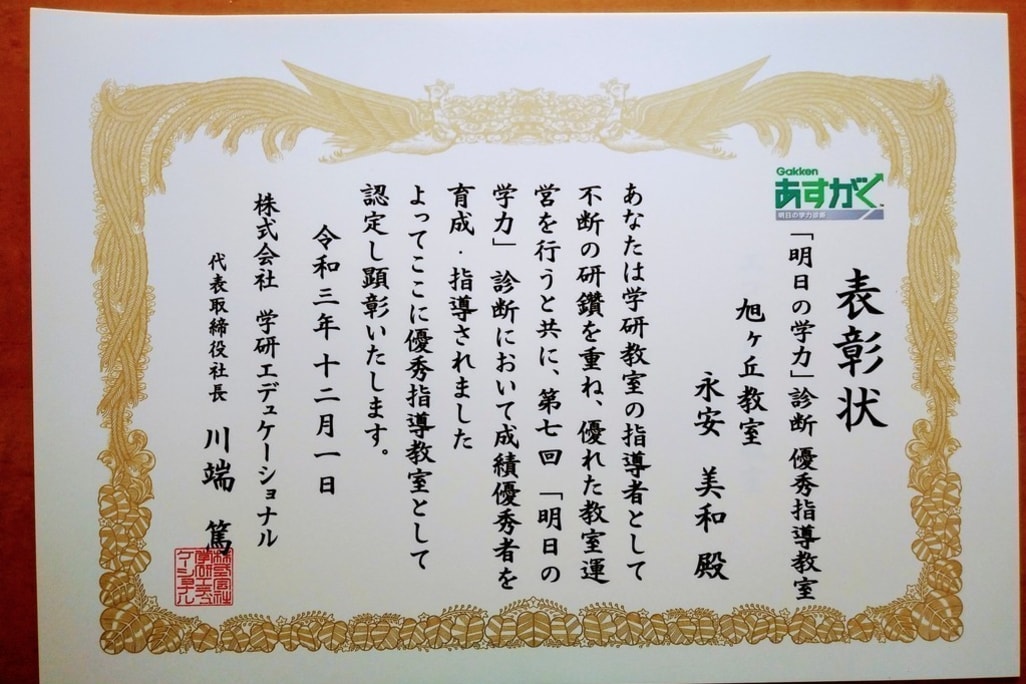 表彰状
Gakken
あすがく
明日の学力診断
「明日の学力」診断 優秀指導教室
旭ヶ丘教室
永安 美和 殿
あなたは学研教室の指導者として
不断の研鑽を重ね、優れた教室運
営を行うと共に、第七回「明日の
学力」診断において成績優秀者を
育成・指導されました
よってここに優秀指導教室として
認定し顕彰いたします。
令和三年十二月一日
株式会社 学研エデュケーショナル
代表取締役社長 川端 篤
株式会社
学研エデュ
ケーショナル